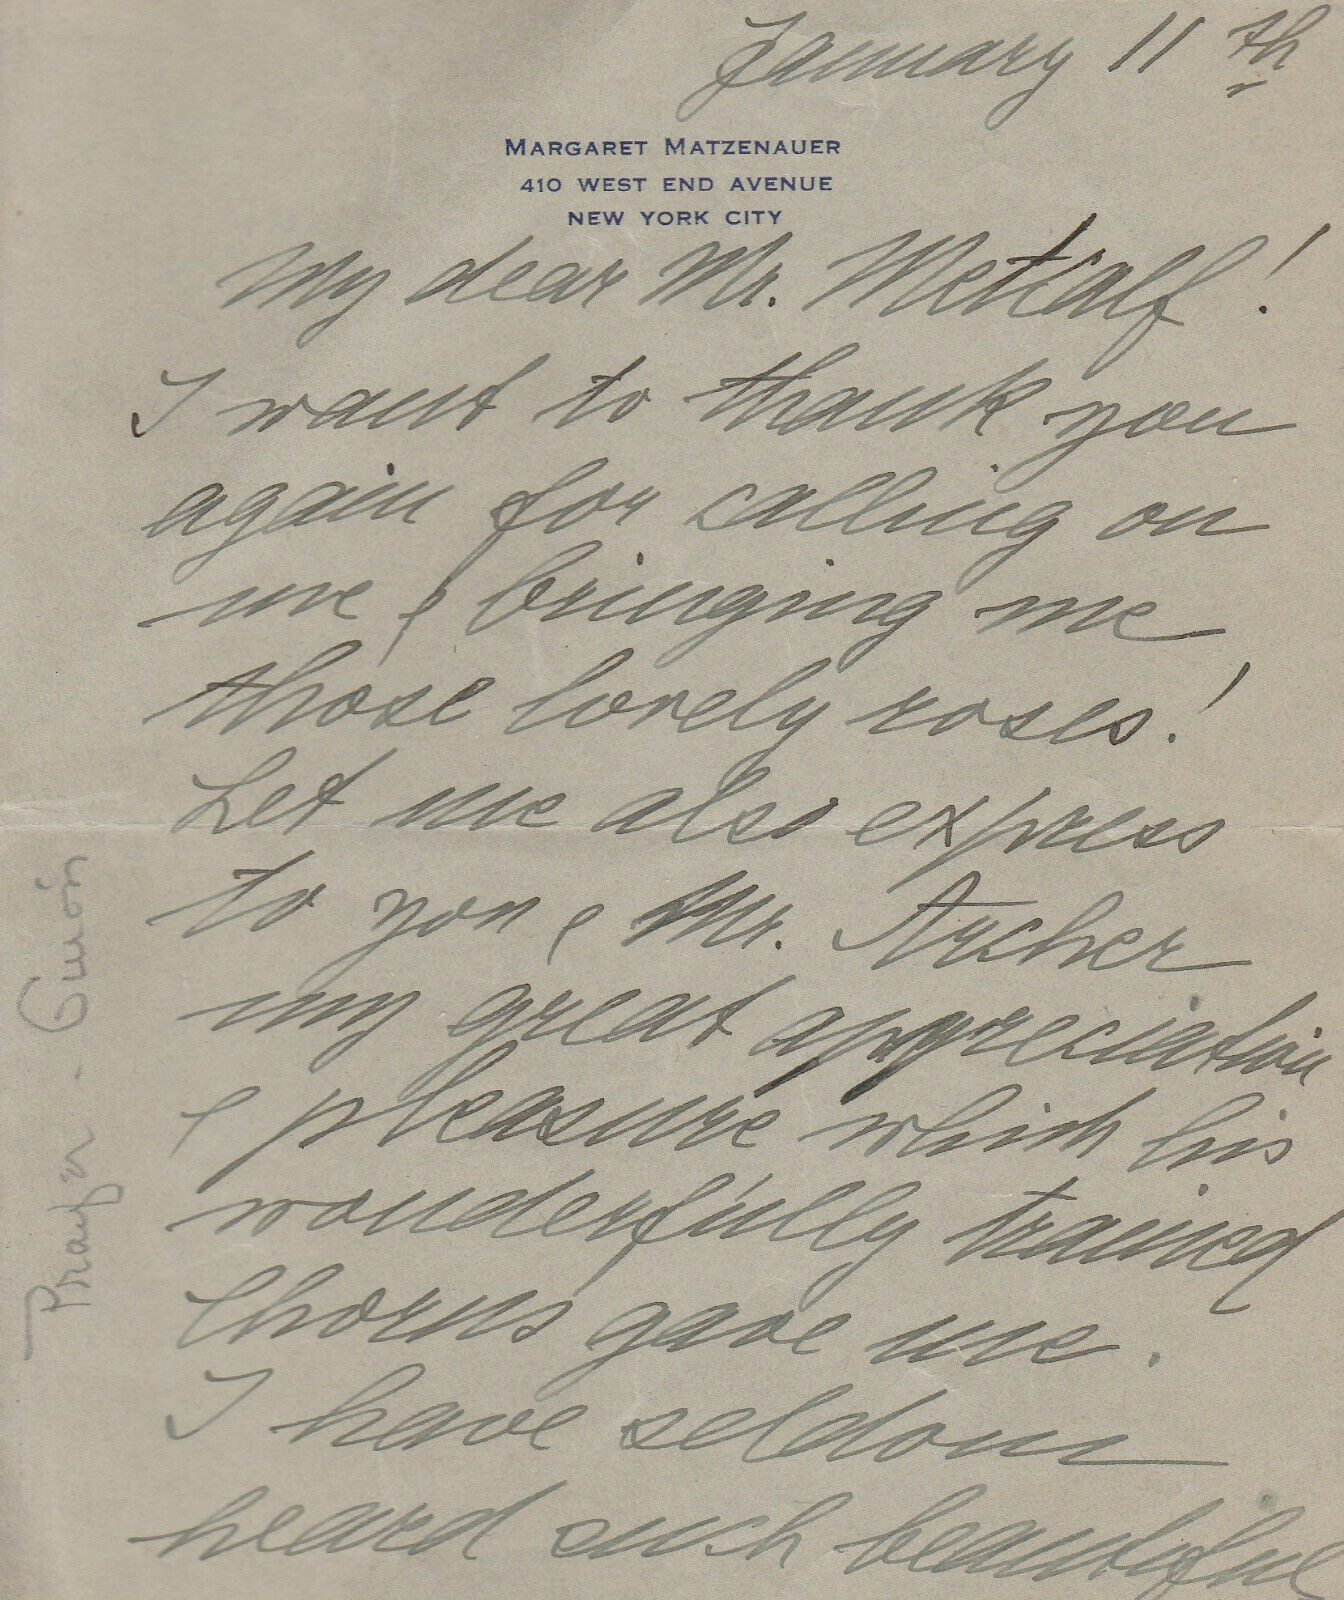 January 11th
MARGARET MATZENAUER
410 WEST END AVENUE
NEW YORK CITY
My dear Mr. Metcalf!
I want to thank you
again for calling on
me & bringing me
those lovely roses!
Let me also express
to you & Mr. Archer
my great appreciation
& pleasure which his
wonderfully trained
chorus gave me.
I have seldom
heard such beautiful
Guión